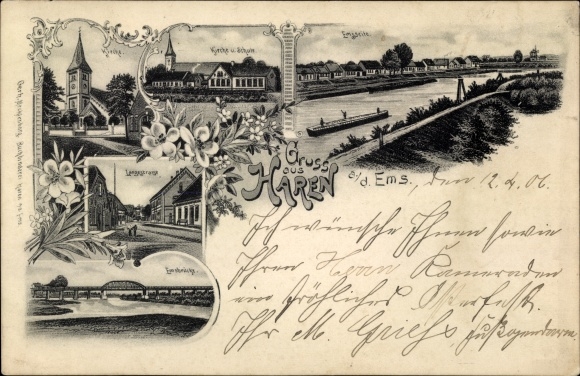 Kirche.
Kirche u. Schule
Emsseite.
Langestrasse
Emsbrücke.
Gruss
aus
HAREN
a/d. Ems.
den 12.4.06.
Ich wünsche Ihnen sowie
Ihren Herrn Kameraden
ein fröhliches Osterfest.
Ihr M.